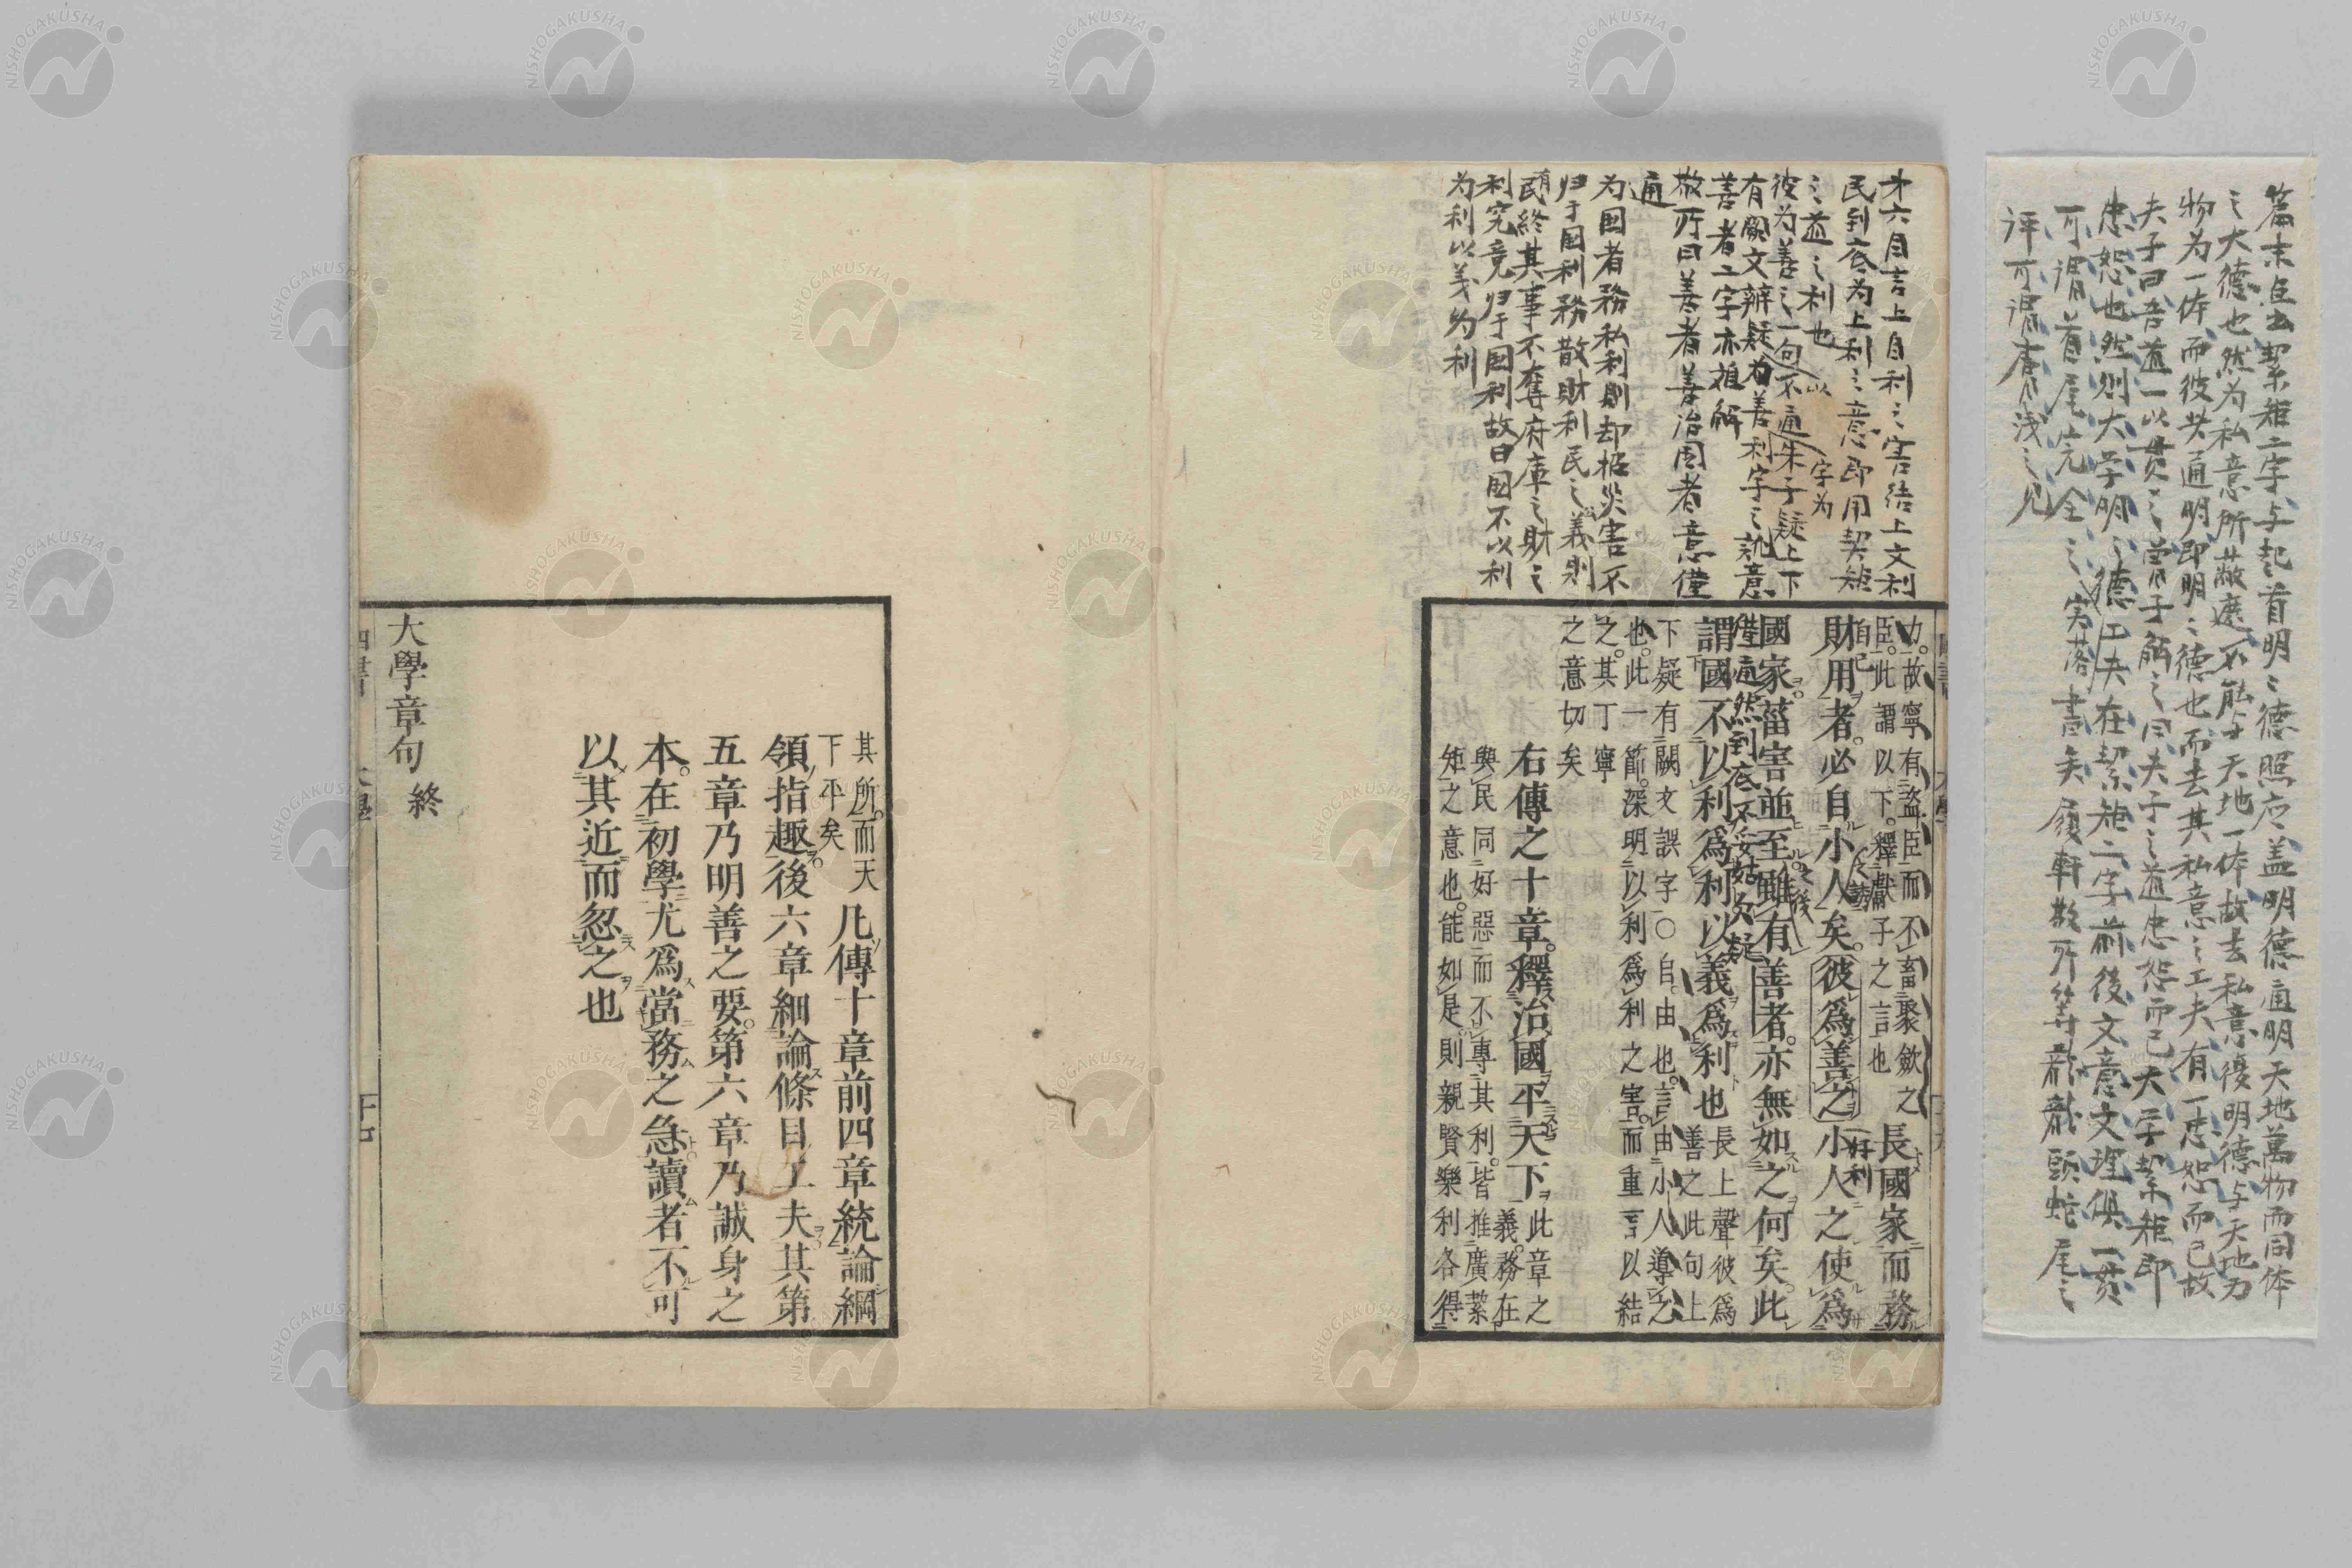 篇末点出絜矩二字与起首明〻德照应盖明德通明天地萬物而同体
之大德也然为私意所蔽遮不能与天地一体故去私意復明德与天地万
物为一体而彼此通明即明〻德也而去其私意之工夫有一忠恕而已故
夫子曰吾道一以貫之曽子解之曰夫子之道忠恕而已大学絜矩即
忠恕也然則大学明〻德工夫在絜矩二字前後文意文理俱一貫
可謂首尾完全之
評可謂膚浅之見
才六自言上自利之害结上文利
民到底为上利之意即用契矩
之道之利也
彼为善之一句不通朱子疑上下
有闕文辨疑为善利字之訛意
善者二字亦
敬所曰善者善治国者意僅
通
为国者務私利則却招災害不
归于国利務散財利民之義則
民終其事不奪府庫之財之
利究竟归于国利故曰国不以利
为利以義为利
力。故寧有盜臣而不畜聚斂之
臣。此謂以下。釋獻子之言也
長國家而務
財用者。必自小人矣。彼爲善之小人之使爲
國家。菑害並至雖有善者。亦無如之何矣。此
謂國不以利爲利以義爲利也
長上聲彼爲
善之此句上
下疑有闕文誤字〇自。由也。言由小人導之
也。此一節。深明以利爲利之害。而重言以結
之。其丁寧
之意切矣
右傳之十章。釋治國平天下
此章之
義。務在
與民同好惡而不專其利。皆推廣絜
矩之意也。能如是。則親賢樂利各得
其所。而天
下平矣
凡傳十章前四章統論綱
領指趣。後六章細論條目工夫其第
五章乃明善之要。第六章乃誠身之
本。在初學尤爲當務之急讀者不可
以其近而忽之也
大學章句終